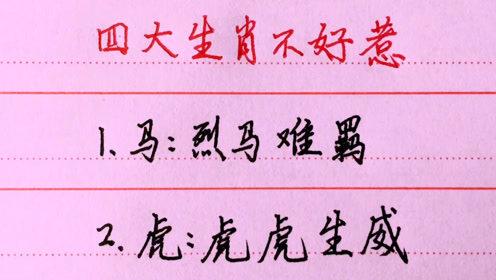 四大生肖不好惹
1.马:烈马难羁
2.虎:虎虎生威